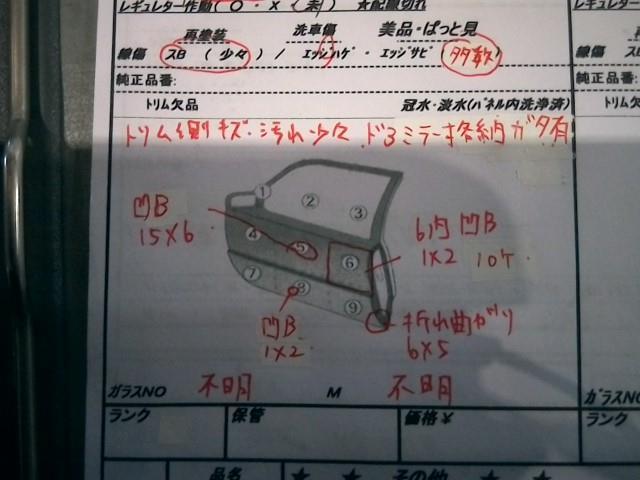 レギュレター作動(〇・×(未) ★配線切れ
再塗装 洗車傷 美品・ぱっと見
線傷 スB ( 少々 ) / エッジハゲ・エッジサビ ( 多数 )
純正品番:
トリム欠品 冠水・淡水(パネル内洗浄済) トリム欠
トリム側キズ・汚れ少々 ドアミラー格納ガタ有
①
② ③
凹B
15×6
④ ⑤ ⑥
6内 凹B
1×2 10ケ
⑦ ⑧ ⑨
凹B
1×2
折れ曲がり
6×5
ガラスNO 不明 M 不明 ガラスNO
ランク 保管 価格¥ ランク
品名 ★ ★ その他 ★ ★